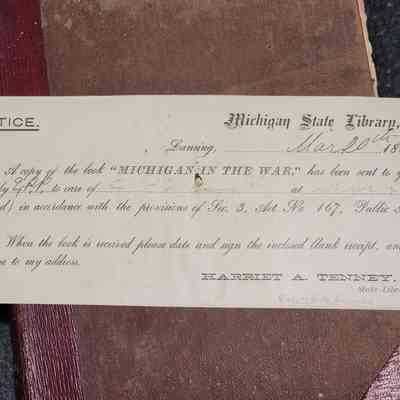 TICE.
Michigan State Library,
Lansing, Mar 20th 18
A copy of the book "MICHIGAN IN THE WAR," has been sent to y
by to care of at
d) in accordance with the provisions of Sec. 3, Act No 167, Public
When the book is received please date and sign the inclosed blank receipt, an
e to my address.
HARRIET A. TENNEY,
State Libr